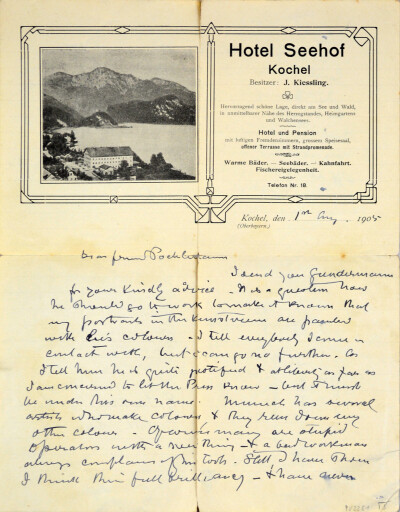 Hotel Seehof
Kochel
Besitzer: J. Kiessling.
Hervorragend schöne Lage, direkt am See und Wald,
in unmittelbarer Nähe des Herzogstandes, Heimgarten
und Walchensee.
Hotel und Pension
mit luftigen Fremdenzimmern, grossem Speisesaal,
offener Terrasse mit Strandpromenade.
Warme Bäder. — Seebäder. — Kahnfahrt.
Fischereigelegenheit.
Telefon Nr. 18.
Kochel, den 1st Aug. 1905
(Oberbayern.)
Dear friend
I send you Gundermann
for your kindly advice - It is a question how
he should go to work to make it known that
my portraits in the are painted
with his colours - I tell everybody I come in
contact with, but can go no further. As
I tell him he is quite justified & at liberty as far as
I am concerned to let the Press know - but it must
be under his own name. Munich has several
artists who make colours & they run down any
other colours - Of course many are stupid
operators with a new thing - & a bad workman
always complains of his tools. Still I have them
I think their full brilliancy - & have even